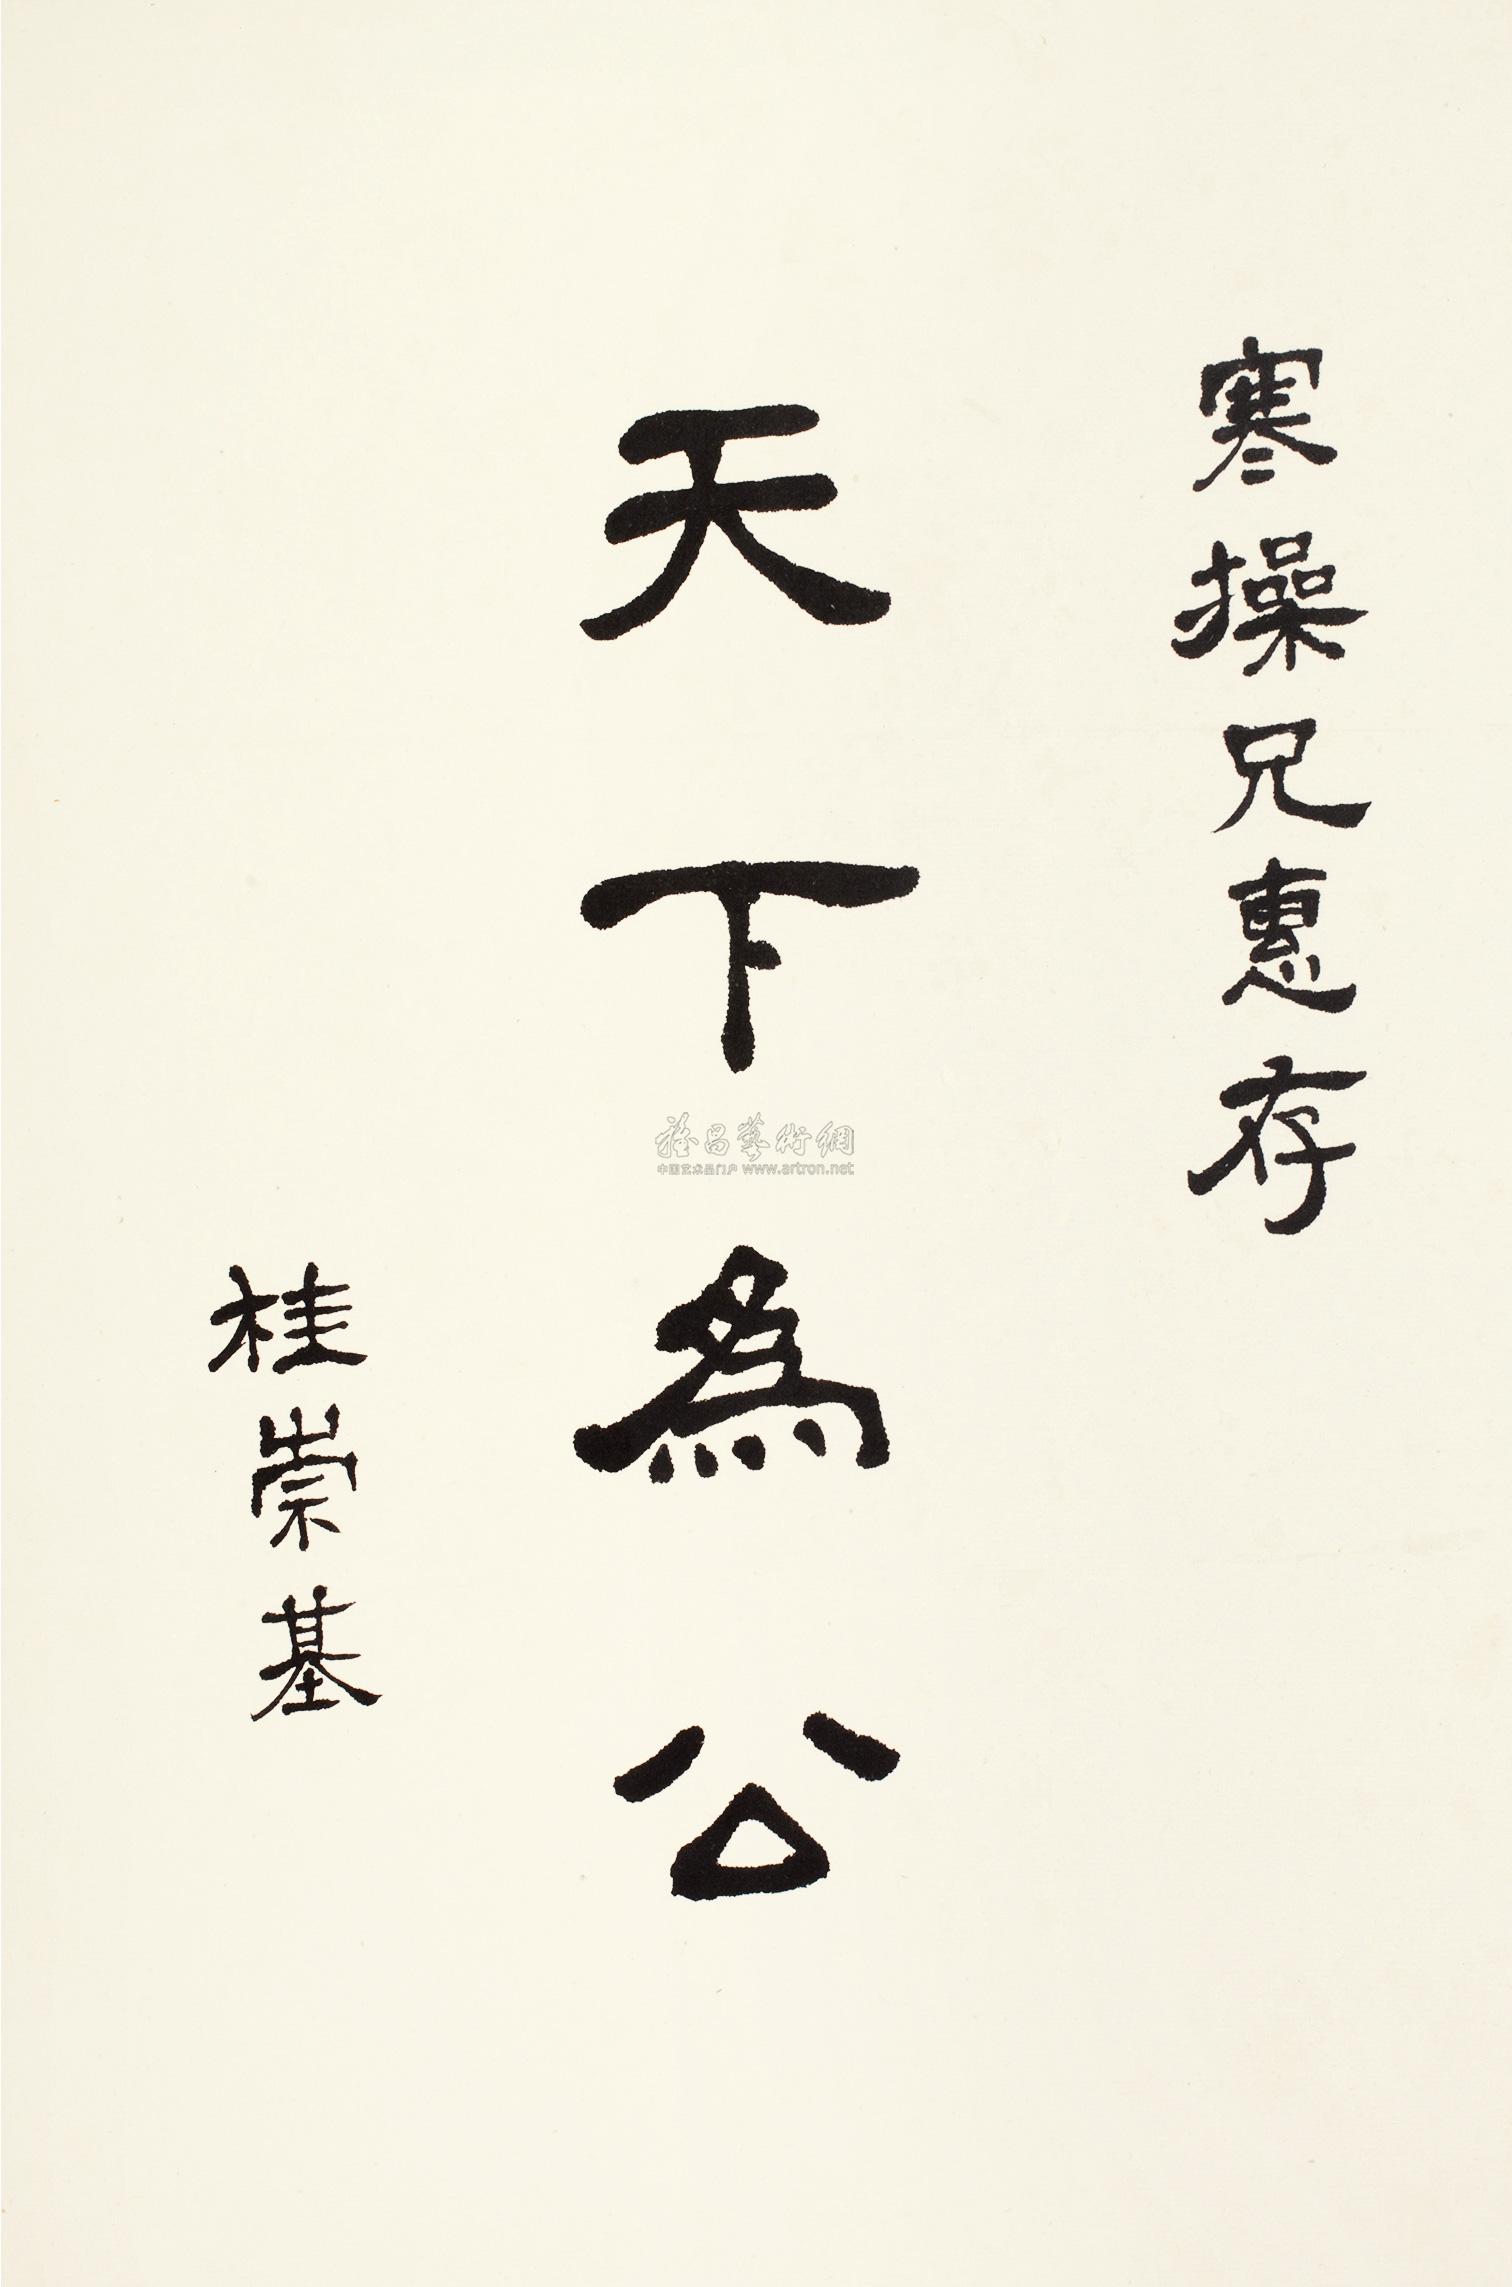 寒操兄惠存
天下為公
桂崇基
雅昌藝術網
中国艺术品门户 www.artron.net